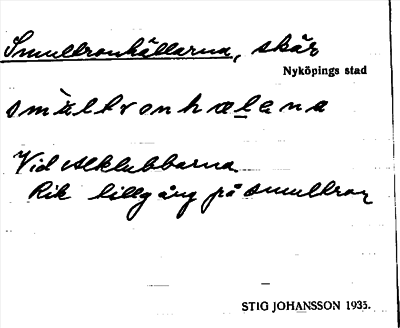 Smultronhällarna, skär
Nyköpings stad
smùltronhælana
Vid Alklubbarna.
Rik tillgång på smultron
STIG JOHANSSON 1935.